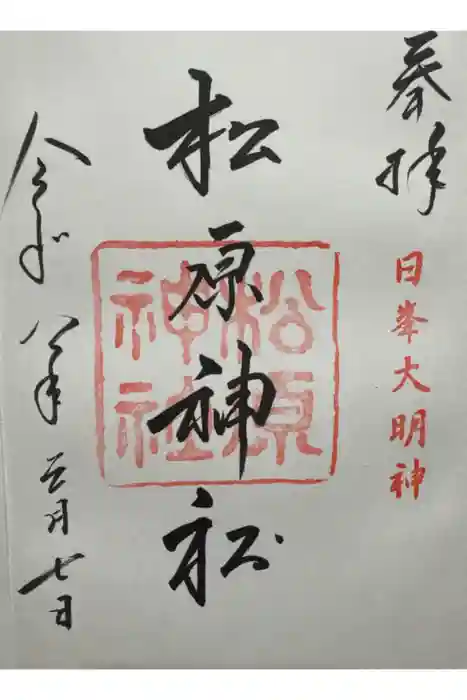 奉拝
日峯大明神
松原神社
松原
神社
令和八年三月七日